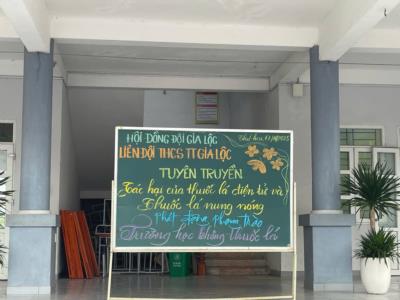 HỘI ĐỒNG ĐỘI GIA LỘC
LIÊN ĐỘI THCS TT GIA LỘC
TUYÊN TRUYỀN
Tác hại của thuốc lá điện tử và
thuốc lá nung nóng
Phát động phong trào
Trường học không thuốc lá